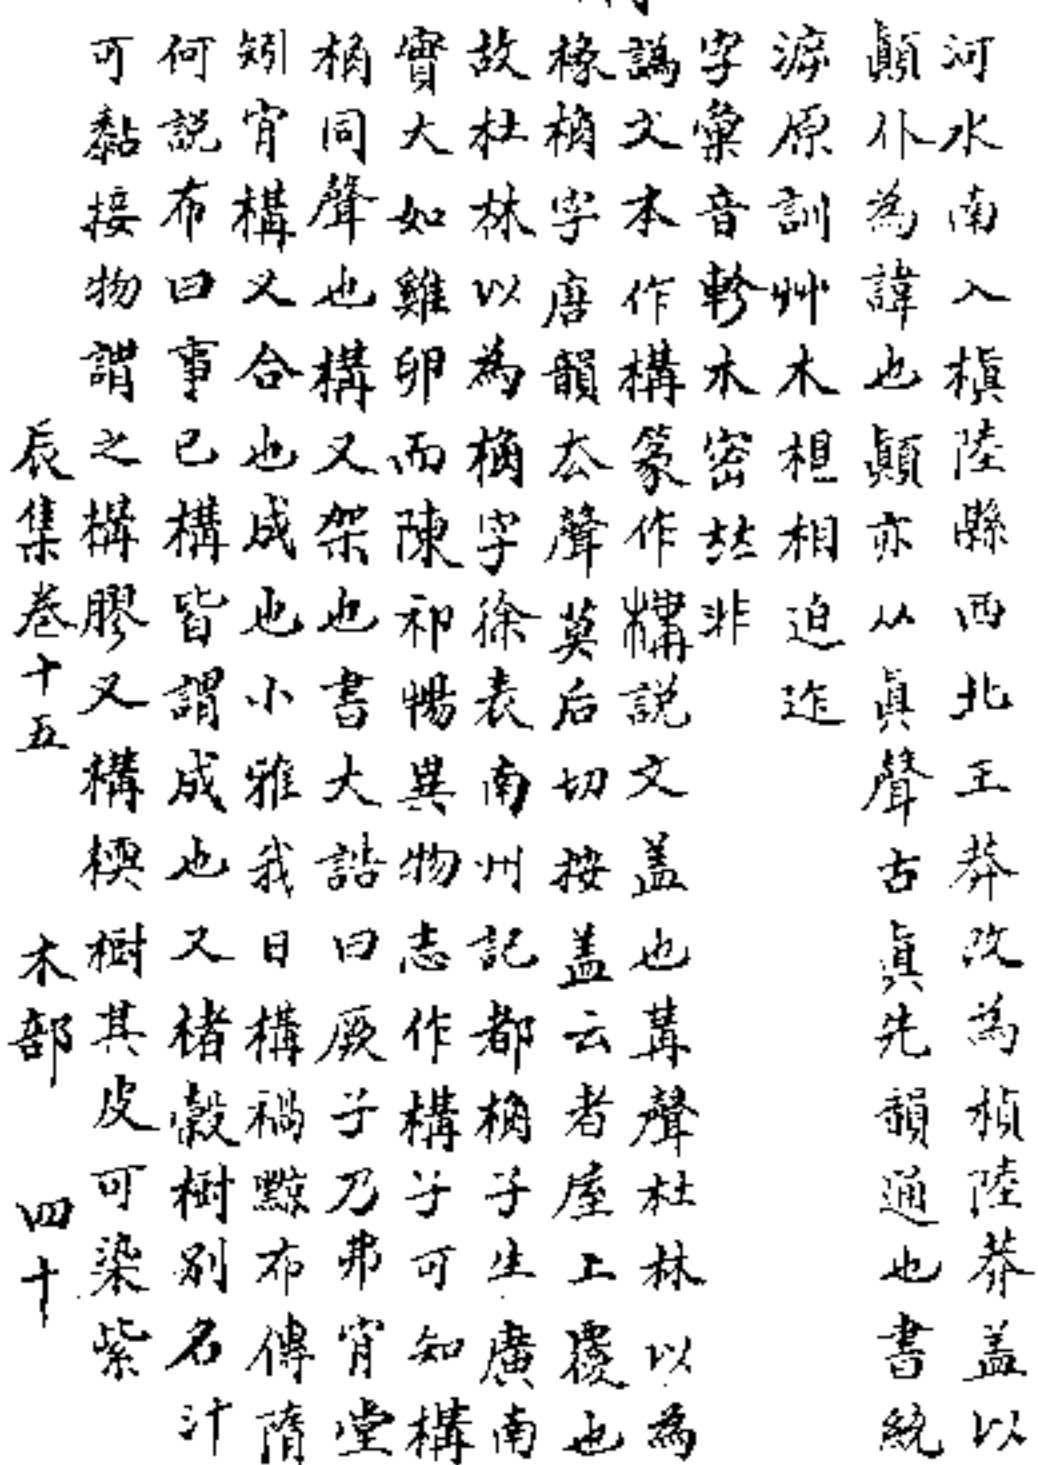 河水南入槙陸縣西北王莽改為楨陸莽盖以
顛仆為諱也顛亦从真聲古真先韻通也書統
㴑原訓艸木相相迫迮
字彙音軫木密㽵非
譌文本作構篆作構説文盖也冓聲杜林以為
椽桷字唐韻去聲莫后切按盖云者屋上覆也
故杜林以為桷字徐表南州記都桷子生廣南
實大如雞卵而陳祁暢異物志作構子可知構
桷同聲也構又架也書大誥曰厥子乃弗肯堂
矧肯構又合也成也小雅我日構禍黥布傳隋
何説布曰事已構皆謂成也又楮穀樹别名汁
可黏接物謂之構膠又構楔樹其皮可染紫
辰集卷十五 木部 四十